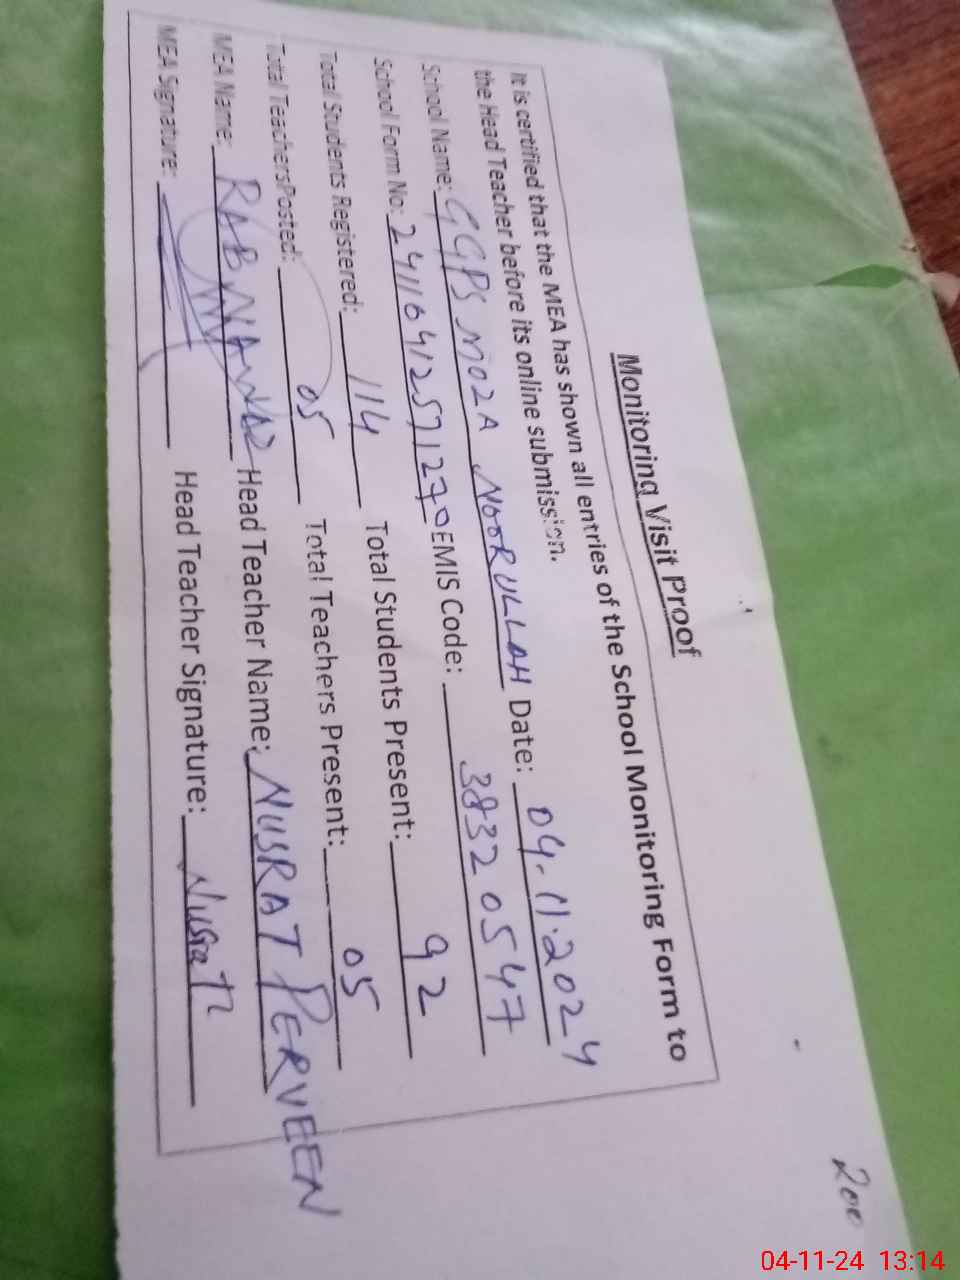 200
Monitoring Visit Proof
It is certified that the MEA has shown all entries of the School Monitoring Form to
the Head Teacher before its online submission.
School Name: GGPS MOZA NOORULLAH Date: 04.11.2024
School Form No: 24116412571270 EMIS Code: 38320547
Total Students Registered: 114 Total Students Present: 92
Total Teachers Posted: 05 Total Teachers Present: 05
MEA Name: RAB NAWAZ Head Teacher Name: NUSRAT PERVEEN
MEA Signature: Head Teacher Signature: Nusrat
04-11-24 13:14